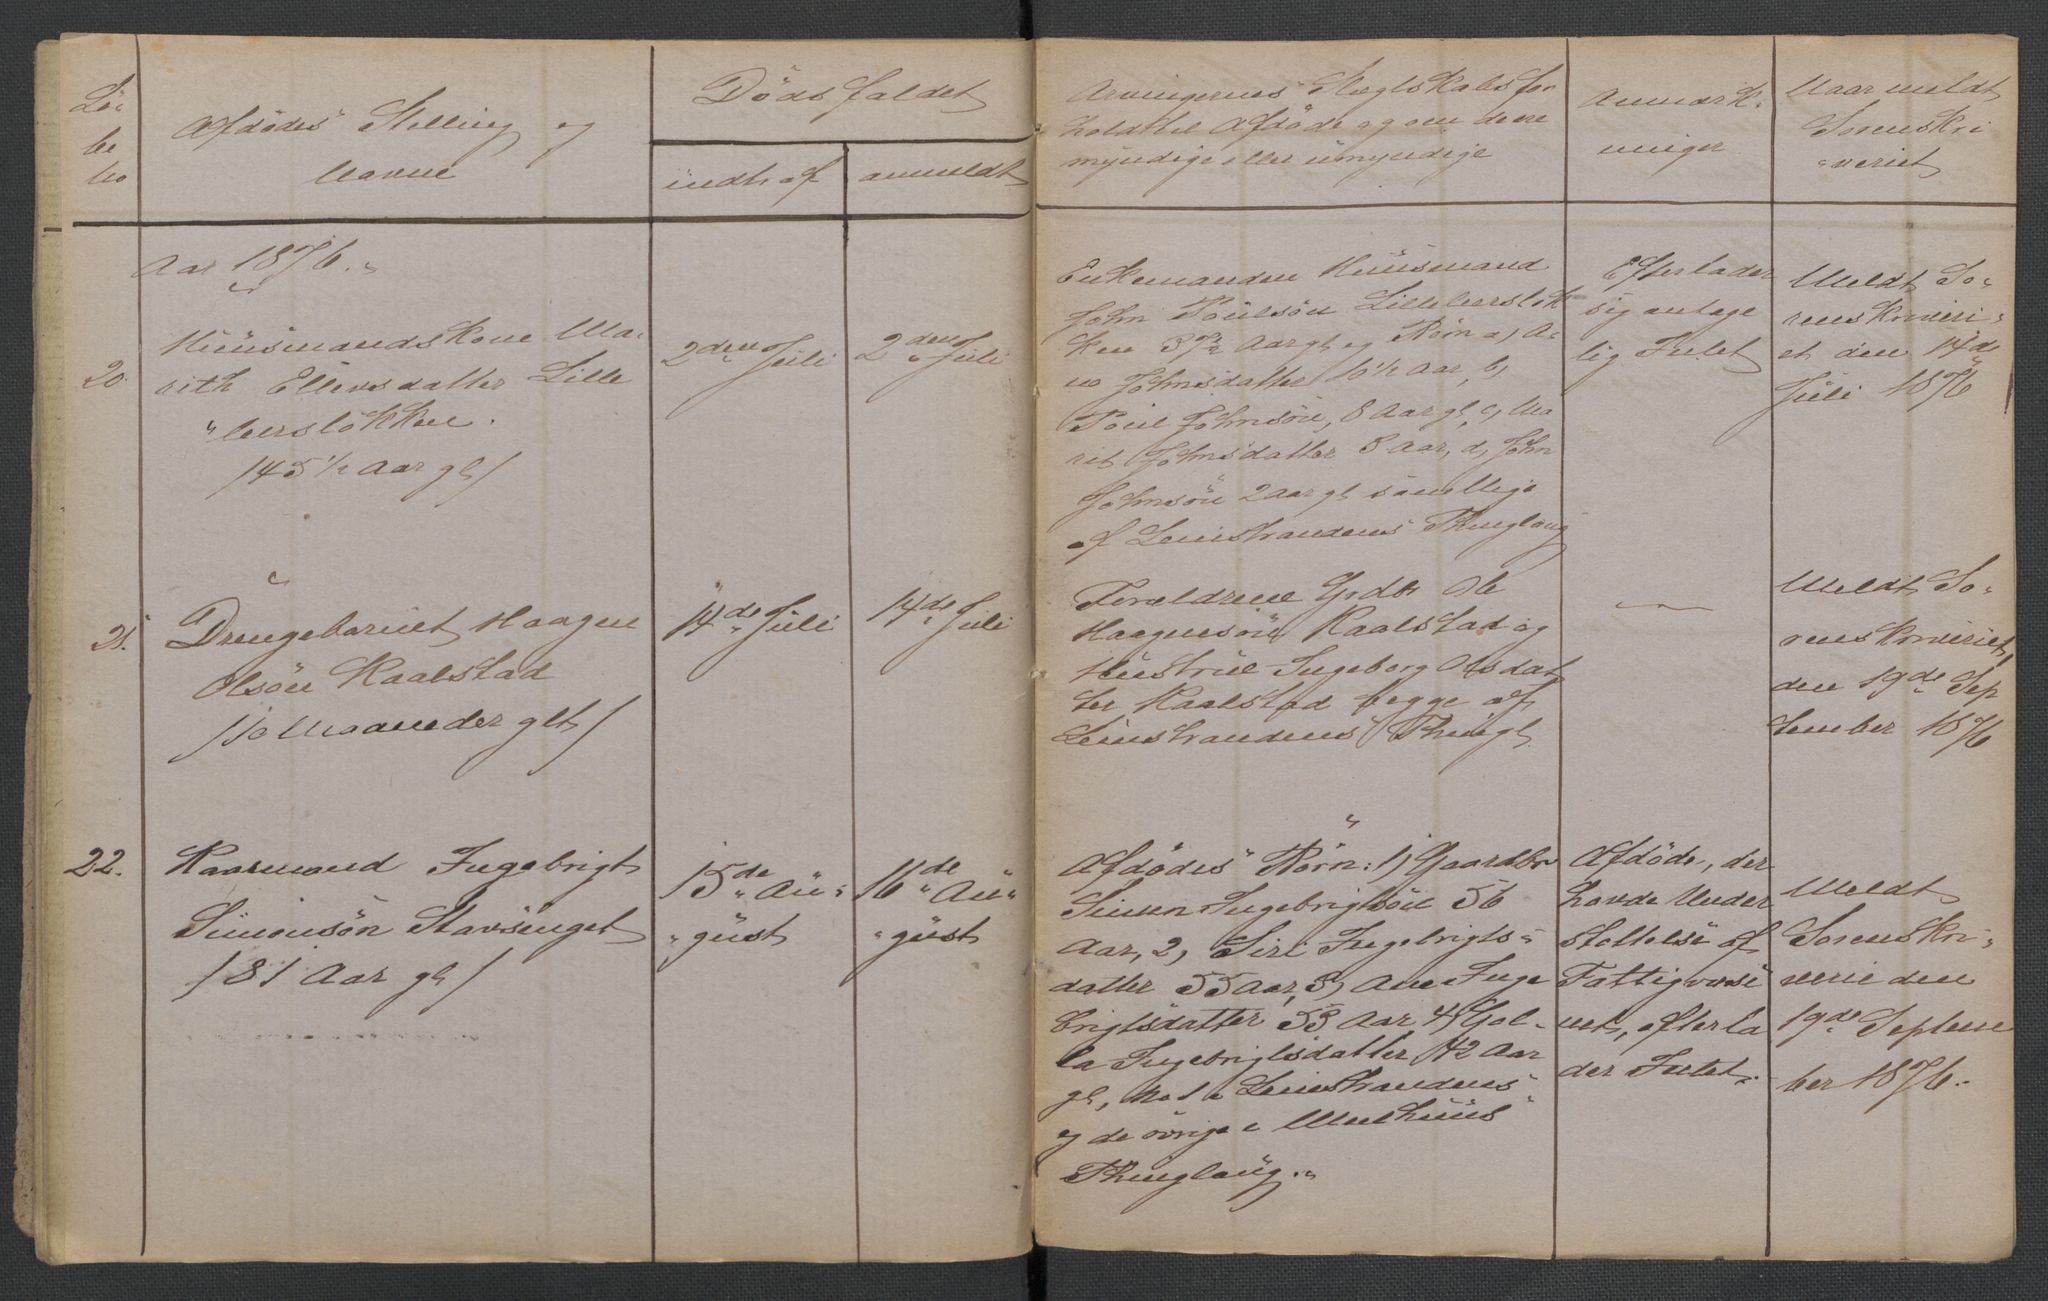 Lö-
be
No
Afdödes Stilling og
Navne
Dödsfaldet
indtraf
anmeldt
Arvingernes Slægtskabsfor
hold til Afdöde og om de ere
myndige eller umyndige
Anmærk-
ninger
Naar meldt
Sorenskri
veriet
Aar 1876.
20.
Huusmandskone Ma-
rith Ellevsdatter Lille
leersløkken.
/45 1/2 Aar gl/
2den Juli
2den Juli
Enkemanden Huusmand
John Poulsön Lilleleerslök
ken 37 1/2 Aar gl og Börn a, A-
ne Johnsdatter 10 1/2 Aar, b,
Poul Johnsön, 8 Aar gl, c, Ma
rit Johnsdatter 5 Aar, d, John
Johnsön 2 Aar gl samtlige
af Leinstrandens Thinglaug
Efterlader
sig antage
lig Intet
Meldt So-
renskriveri-
et den 14de
Juli 1876
21.
Drengebarnet Haagen
Olsön Kaalstad
/10 Maaneder glt/
14de Juli
14de Juli
Forældrene Grdbr Ole
Haagensön Kaalstad og
Hustrue Ingeborg Olsdat
ter Kaalstad begge af
Leinstrandens Thingl
Meldt So-
renskriveriet,
den 19de Sep
tember 1876
22.
Kaarmand Ingebrigt
Simonsön Stavsenget
/81 Aar gl/
15de Au-
gust
16de Au-
gust
Afdödes Börn: 1, Gaardbr
Simen Ingebrigtsön 56
Aar, 2, Siri Ingebrigts-
datter 55 Aar, 3, Ane Inge
brigtsdatter 53 Aar 4, Gol-
la Ingebrigtsdatter 42 Aar
gl, No 1 i Leinstrandens
og de övrige i Melhuus
Thinglaug.
Afdöde, der
havde Under
stöttelse af
Fattigvæse
net, efterla
der Intet.
Meldt
Sorenskri-
verie den
19de Septem
ber 1876.